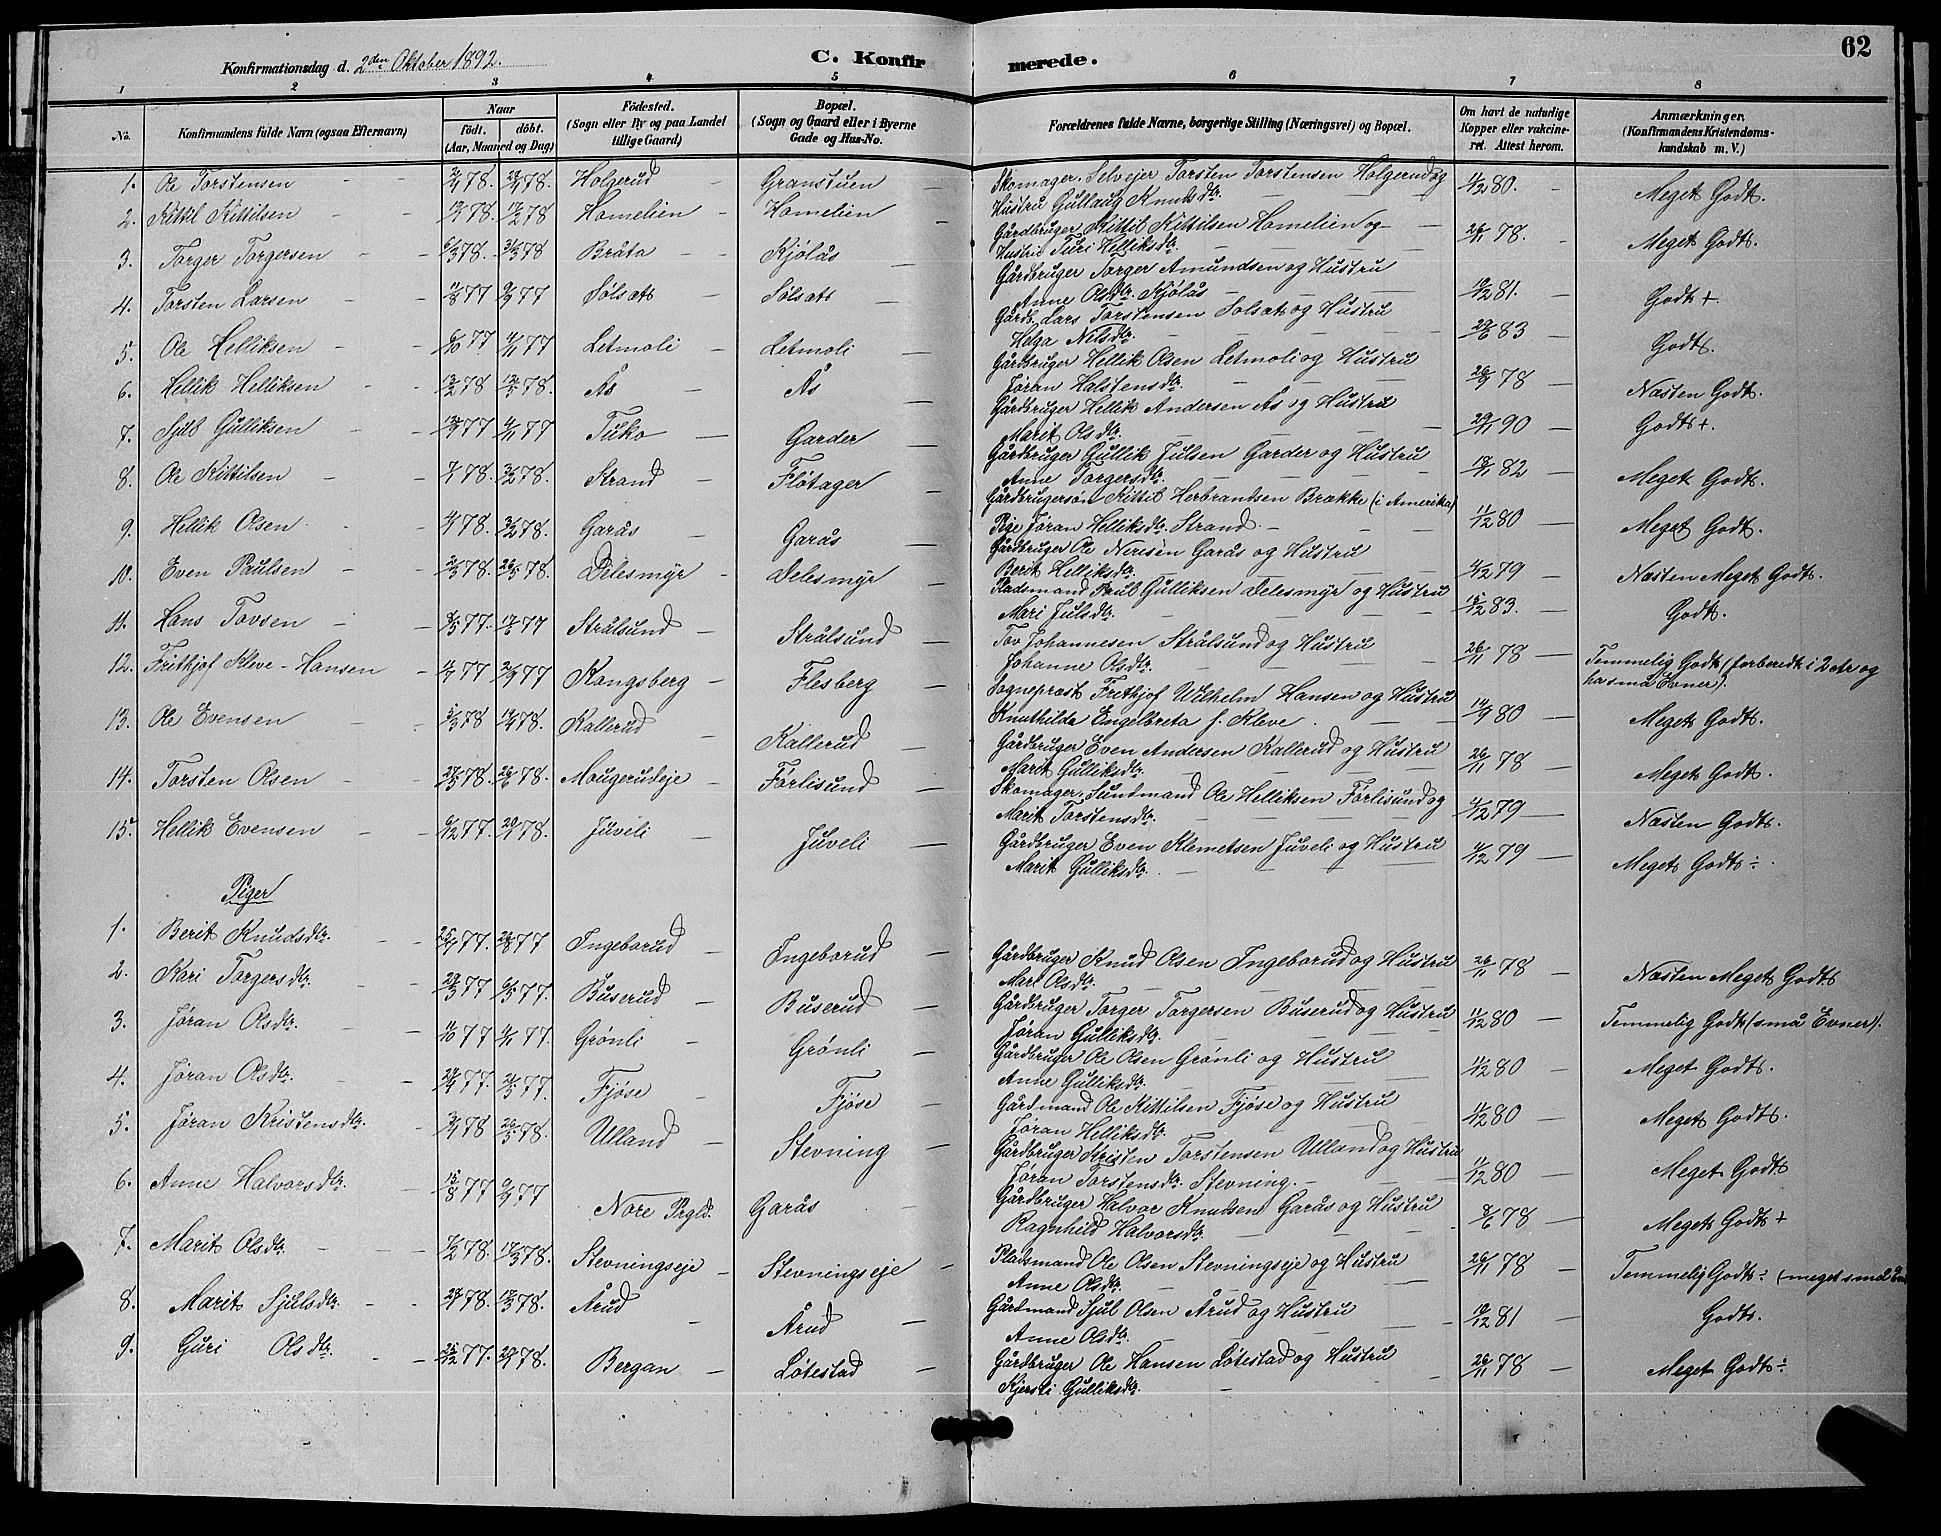 Konfirmationsdag d. 2den Oktober 1892. C. Konfirmerede. 62
1 2 3 4 5 6 7 8
No. Konfirmandens fulde Navn (ogsaa Efternavn) Naar födt. döbt. (Aar, Maaned og Dag) Födested. (Sogn eller By og paa Landet tillige Gaard) Bopæl. (Sogn og Gaard eller i Byerne Gade og Hus-No. Forældrenes fulde Navne, borgerlige Stilling (Næringsvei) og Bopæl. Om havt de naturlige Kopper eller vakcineret. Attest herom. Anmærkninger. (Konfirmandens Kristendomskundskab m. V.)
1. Ole Torstensen 78. 78. Holgerud Granstuen Skomager. Selvejer Torsten Torstensen Holgerud og Hustru Gullaug Knutsdtr. 4/12 80. Meget Godt.
2. Kittil Kittilsen 78. 78 Homelien Homelien Gårdbruger Kittil Kittilsen Homelien og Hustru Turi Helliksdtr. 26/11 78. Meget Godt.
3. Torger Torgersen 6/3 78. 31/3 78 Bråta Kjölås Gårdbruger Torger Amundsen og Hustru Anne Olsdtr. Kjölås 81. Godt +.
4. Torsten Larsen 77 77 Sölsæt Sölsæt Gårdb. Lars Torstensen Solsæt og Hustru Helga Nilsdtr. 83 Godt.
5. Ole Helliksen 6/10 77 4/11 77 Letmoli Letmoli Gårdbruger Hellik Olsen Letmoli og Hustru Jöran Halstensdtr. 78 Næsten Godt.
6. Hellik Helliksen 78 78. Ås Ås Gårdbruger Hellik Andersen Ås og Hustru Marit Olsdtr. 90 Godt +.
7. Sjul Gulliksen 77 4/11 77 Tuko Garder Gårdbruger Gullik Julsen Garder og Hustru Anne Torgersdtr. 82 Meget Godt.
8. Ole Kittilsen 78. 3/2 78. Strand Flötager Gårdbrugersön Kittil Herbrandsen Brække (i Amerika) Pige Jöran Helliksdtr. Strand. 11/12 80 Meget Godt.
9. Hellik Olsen 78. 3/2 78. Garås Garås Gårdbruger Ole Nirisen Garås og Hustru Berit Helliksdtr. 4/12 79 Næsten Meget Godt.
10. Even Paulsen 78. 26/5 78. Delesmyr Delesmyr Pladsmand Paul Gulliksen Delesmyr og Hustru Mari Julsdtr. 83. Godt.
11. Hans Tovsen 77. 77 Strålsund Strålsund Tov Johannesen Strålsund og Hustru Johanne Olsdtr. 26/11 78 Temmelig Godt (forberedt i 2 År og har små Evner).
12. Frithjof Kleve-Hansen 77 77 Kongsberg Flesberg Sogneprest Frithjof Wilhelm Hansen og Hustru Knuthilde Engelbreta f. Kleve. 80 Meget Godt.
13. Ole Evensen 78 78. Kallerud Kallerud Gårdbruger Even Andersen Kallerud og Hustru Marit Gulliksdtr. 26/11 78 Meget Godt.
14. Torsten Olsen 78. 78. Mougerudeje Förlisund Skomager, Sundmand Ole Helliksen Förlisund og Marit Torstensdtr. 4/12 79 Næsten Godt.
15. Hellik Evensen 6/12 77. 20/1 78. Juveli Juveli Gårdbruger Even Klemetsen Juveli og Hustru Marit Gulliksdtr. 4/12 79 Meget Godt ÷.
Piger
1. Berit Knudsdtr. 77. 77 Ingeborud Ingeborud Gårdbruger Knud Olsen Ingeborud og Hustru Mari Olsdtr. 26/11 78 Næsten Meget Godt
2. Kari Torgersdtr. 77 6/5 77. Buserud Buserud Gårdbruger Torger Torgersen Buserud og Hustru Jöran Gulliksdtr. 11/12 80 Temmelig Godt (små Evner).
3. Jöran Olsdtr. 77 4/11 77. Grönli Grönli Gårdbruger Ole Olsen Grönli og Hustru Anne Gulliksdtr. 11/12 80 Meget Godt.
4. Jöran Olsdtr. 77. 77. Fjöse Fjöse Gårdmand Ole Kittilsen Fjöse og Hustru Jöran Helliksdtr. 11/12 80 Meget Godt.
5. Jöran Kristensdtr. 78 26/5 78. Ulland Stevning Gårdbruger Kristen Torstensen Ulland og Hustru Jöran Torstensdtr. Stevning. 11/12 80 Meget Godt
6. Anne Halvorsdtr. 15/8 77 9/9 77 Nore Prgld. Garås Gårdbruger Halvor Knudsen Garås og Hustru Ragnhild Halvorsdtr. 78 Meget Godt +
7. Marit Olsdtr. 78. 17/3 78. Stevningseje Stevningseje Pladsmand Ole Olsen Stevningseje og Hustru Anne Olsdtr. 26/11 78 Temmelig Godt ÷ (meget små
8. Marit Sjulsdtr. 78. 17/3 78. Årud Årud Gårdmand Sjul Olsen Årud og Hustru Anne Olsdtr. 81 Godt.
9. Guri Olsdtr. 77. 78. Bergan Lötestad Gårdbruger Ole Hansen Lötestad og Hustru Kjersti Gulliksdtr. 26/11 78 Meget Godt ÷